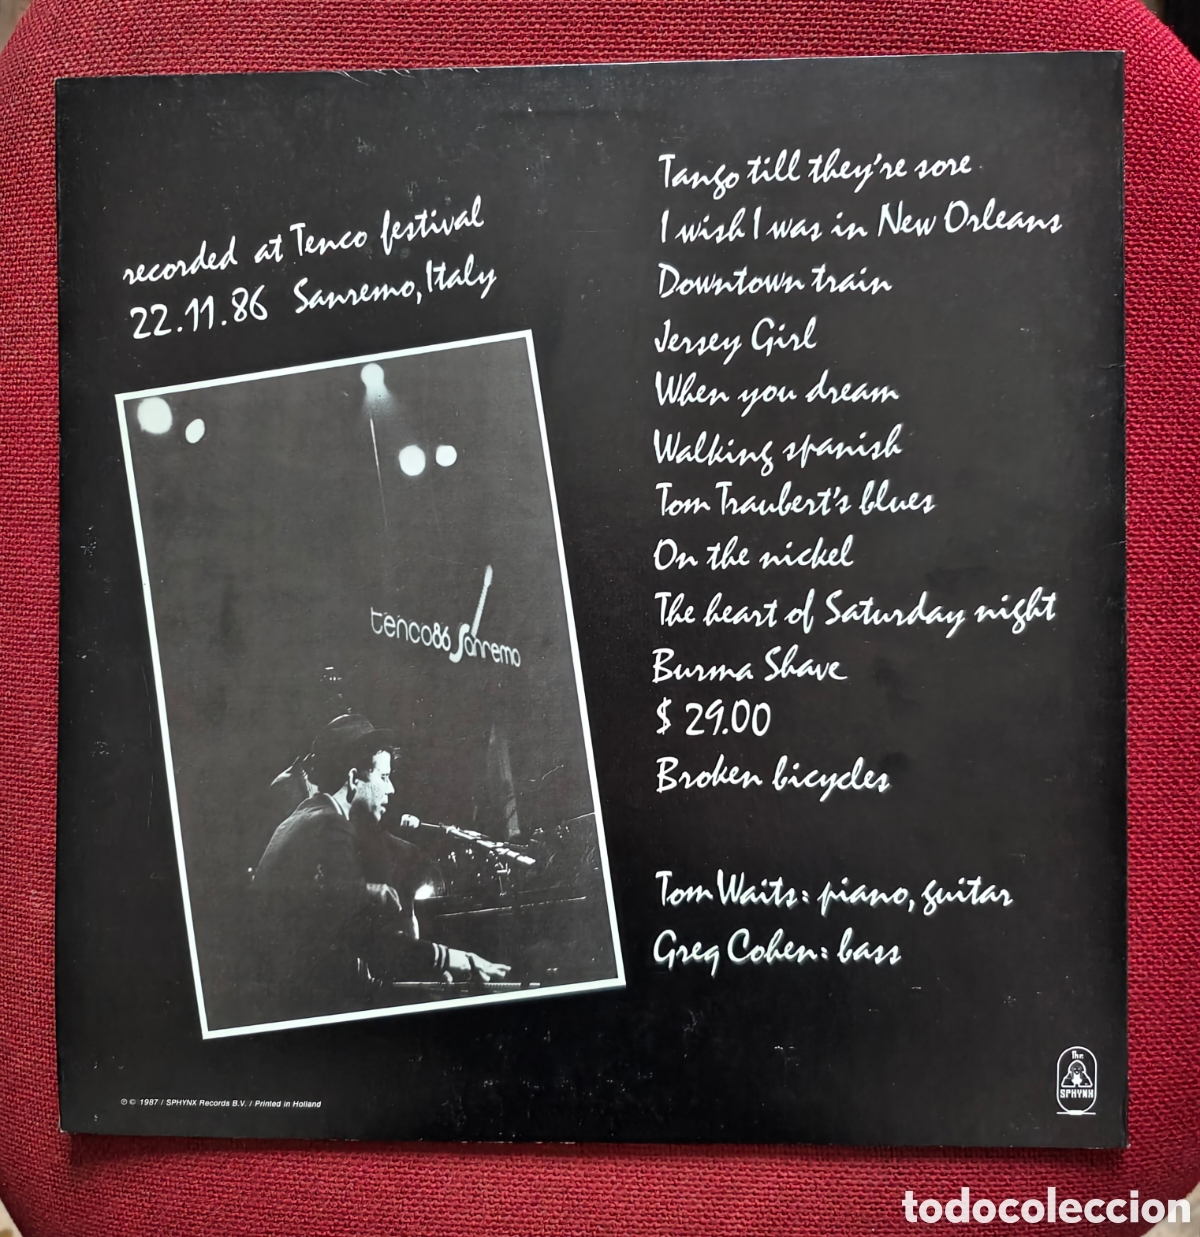 recorded at Tenco festival
22.11.86 Sanremo, Italy
tenco86 Sanremo
Tango till they're sore
I wish I was in New Orleans
Downtown train
Jersey Girl
When you dream
Walking spanish
Tom Traubert's blues
On the nickel
The heart of Saturday night
Burma Shave
$ 29.00
Broken bicycles
Tom Waits: piano, guitar
Greg Cohen: bass
℗ © 1987 / SPHYNX Records B.V. / Printed in Holland
The
SPHYNX
todocoleccion